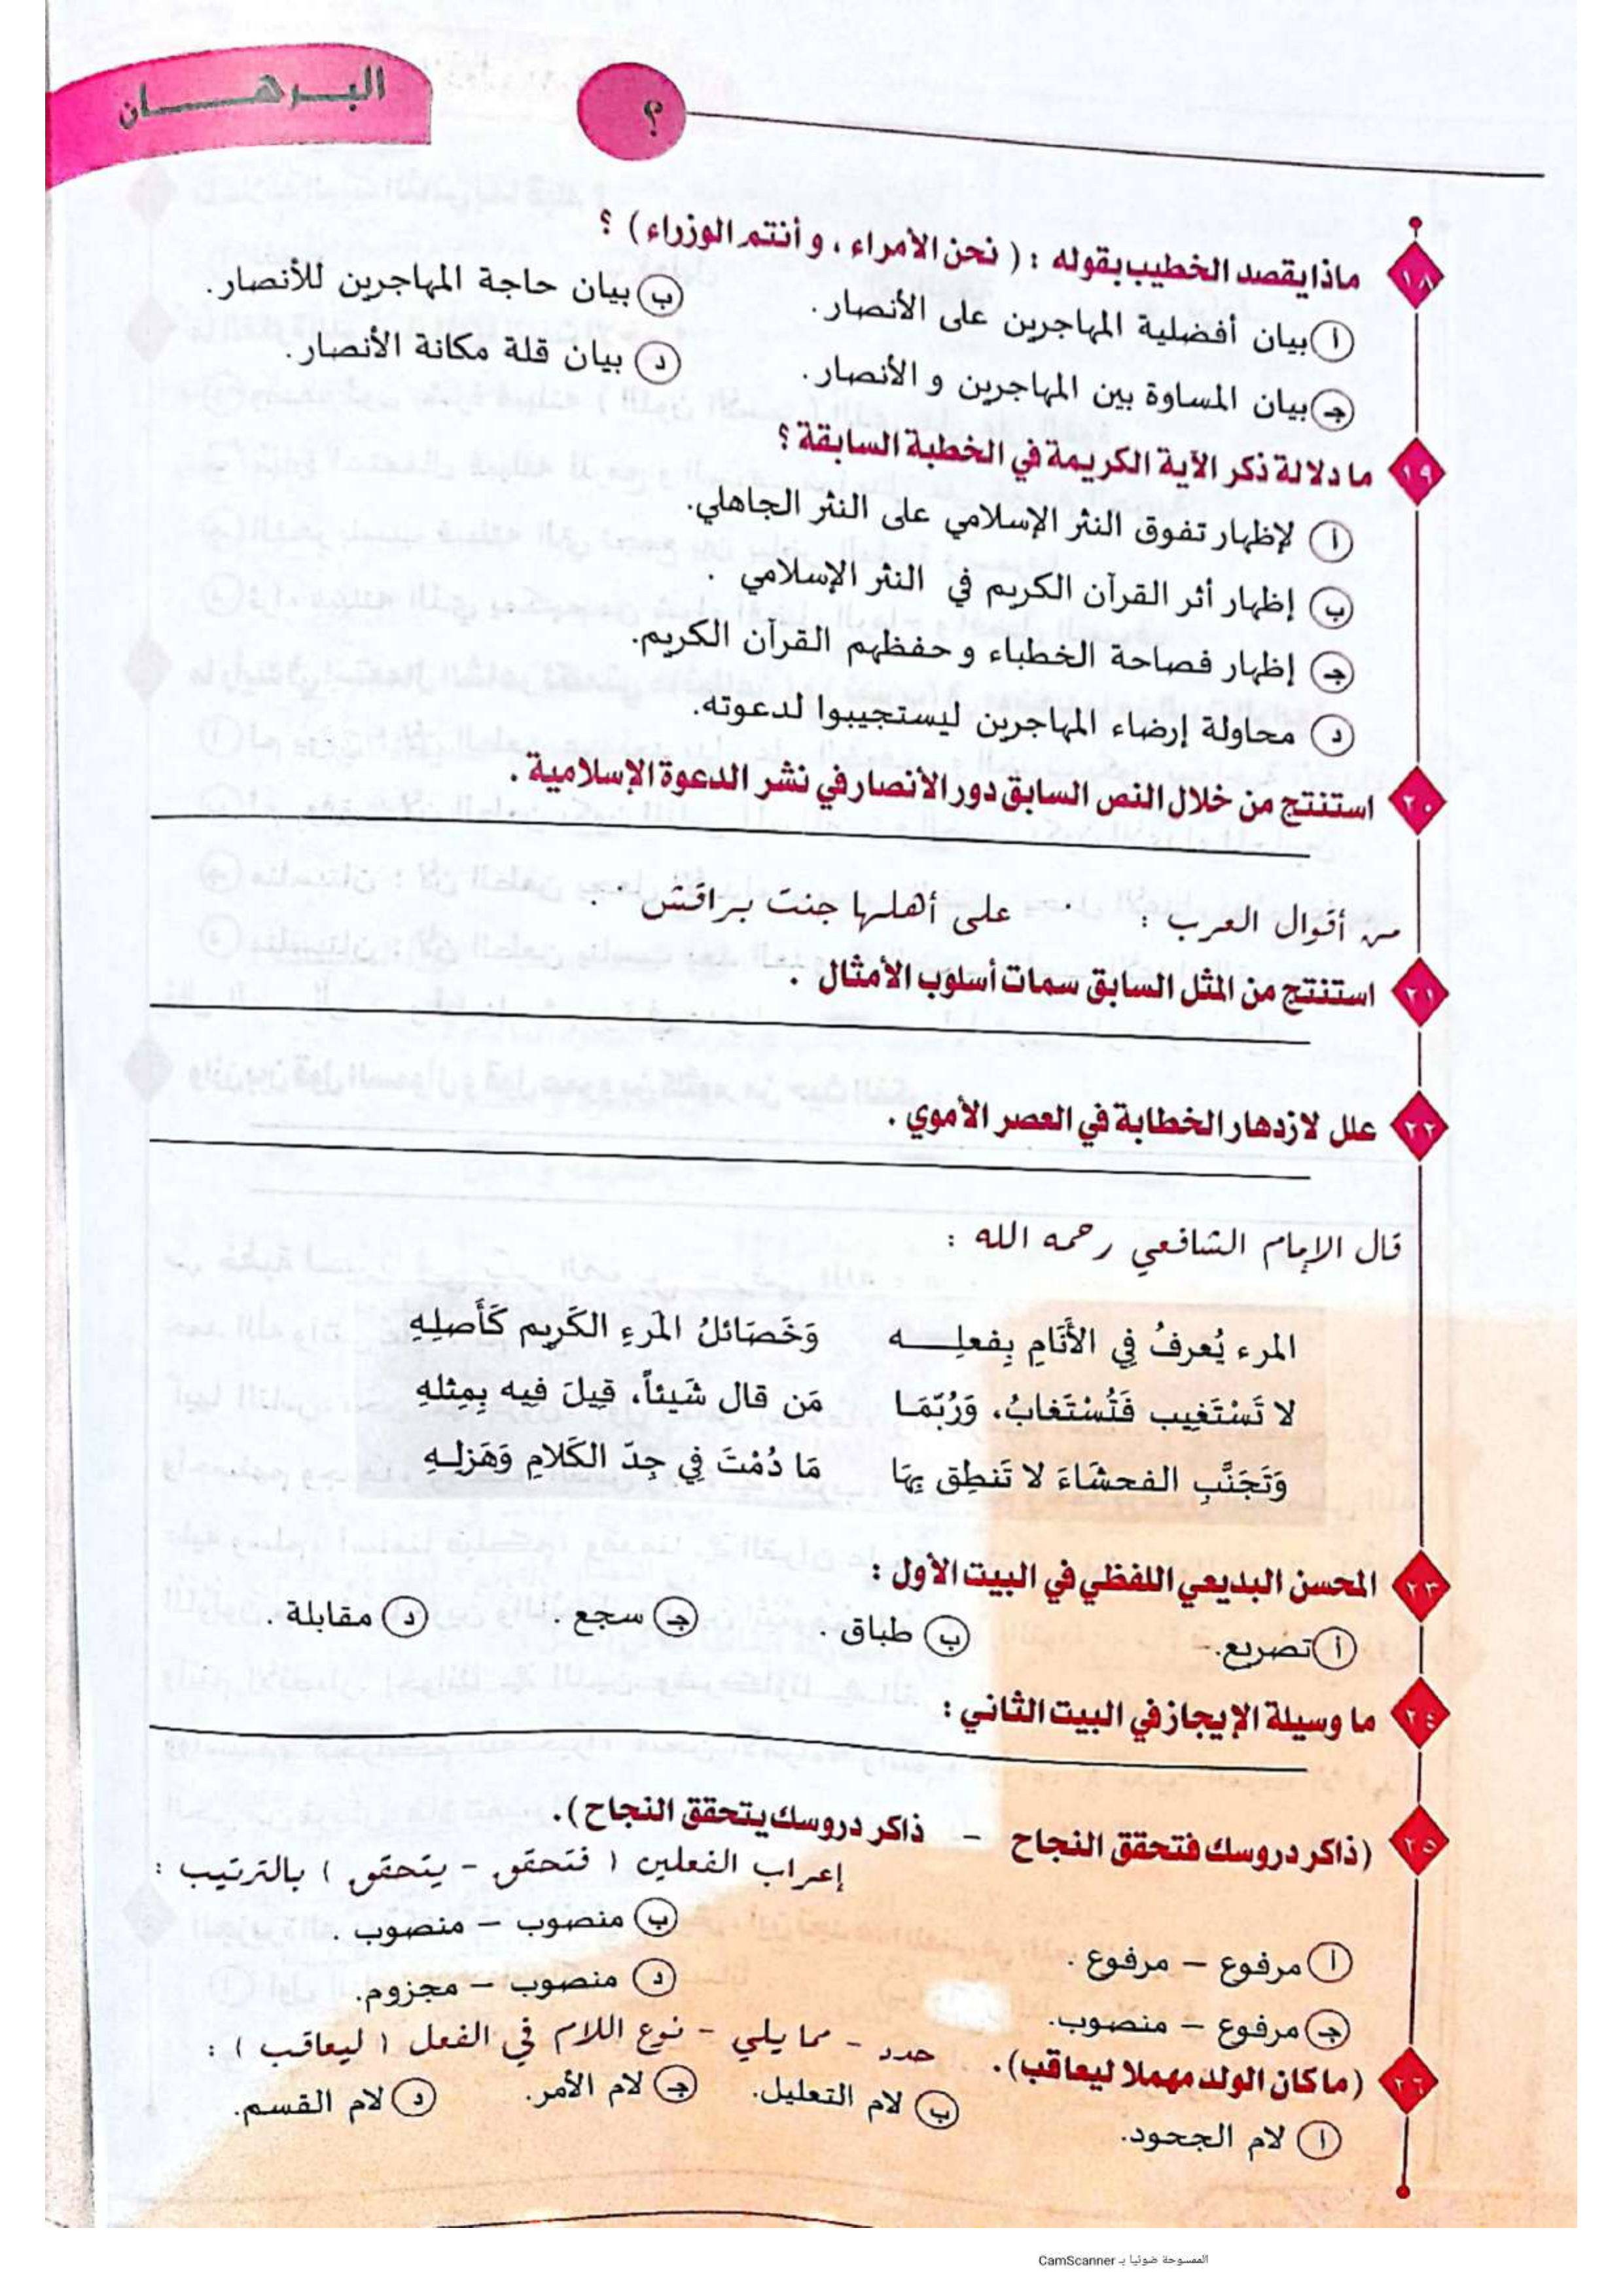 البرهان
؟
١٨ ماذا يقصد الخطيب بقوله : ( نحن الأمراء ، و أنتم الوزراء ) ؟
أ بيان أفضلية المهاجرين على الأنصار. ب بيان حاجة المهاجرين للأنصار.
جـ بيان المساوة بين المهاجرين و الأنصار. د بيان قلة مكانة الأنصار.
١٩ ما دلالة ذكر الآية الكريمة في الخطبة السابقة ؟
أ لإظهار تفوق النثر الإسلامي على النثر الجاهلي.
ب إظهار أثر القرآن الكريم في النثر الإسلامي .
جـ إظهار فصاحة الخطباء و حفظهم القرآن الكريم.
د محاولة إرضاء المهاجرين ليستجيبوا لدعوته.
٢٠ استنتج من خلال النص السابق دور الأنصار في نشر الدعوة الإسلامية .
من أقوال العرب : " على أهلها جنت براقش " .
٢١ استنتج من المثل السابق سمات أسلوب الأمثال .
٢٢ علل لازدهار الخطابة في العصر الأموي .
قال الإمام الشافعي رحمه الله :
المرء يُعرفُ فِي الأَنَامِ بِفعلِـــه وَخَصَائلُ المَرءِ الكَرِيم كَأَصلِهِ
لا تَسْتَغِيب فَتُسْتَغابُ، وَرُبَّمَـا مَن قال شَيئاً، قِيلَ فِيه بِمِثلهِ
وَتَجَنَّبِ الفحشَاءَ لا تَنطِق بِهَا مَا دُمْتَ فِي جِدّ الكَلامِ وَهَزلِـهِ
٢٣ المحسن البديعي اللفظي في البيت الأول :
أ تصريع. ب طباق . جـ سجع . د مقابلة .
٢٤ ما وسيلة الإيجاز في البيت الثاني :
٢٥ (ذاكر دروسك فتحقق النجاح – ذاكر دروسك يتحقق النجاح ).
إعراب الفعلين ( فتحقق - يتحقق ) بالترتيب :
أ مرفوع – مرفوع . ب منصوب – منصوب .
جـ مرفوع – منصوب. د منصوب – مجزوم.
٢٦ (ما كان الولد مهملا ليعاقب). حدد - مما يلي - نوع اللام في الفعل ( ليعاقب ) :
أ لام الجحود. ب لام التعليل. جـ لام الأمر. د لام القسم.
الممسوحة ضوئيا بـ CamScanner